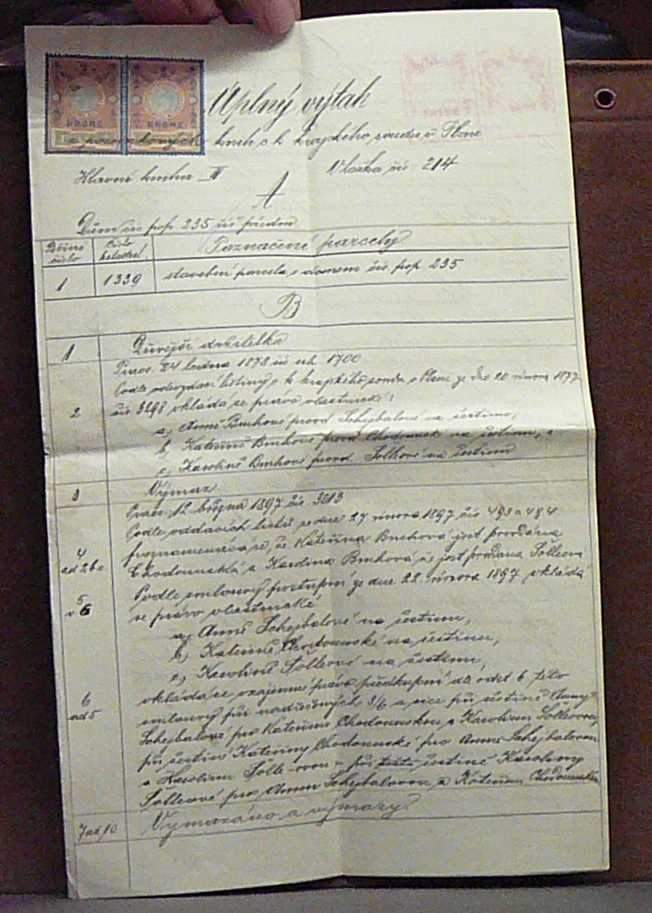 Úplný výtah
z pozemkových knih c. k. krajského soudu v Plzni
Hlavní kniha III Vložka čís 214
A
Dům čís pop. 235 čís předm
Běžné číslo Číslo katastral Poznačení parcely
1 1339 stavební parcela s domem čís pop 235
B
1 Dřívější držitelka
Praes. 24 ledna 1878 čís 1700
Podle odevzdací listiny c. k. krajského soudu v Plzni ze dne 20 února 1877
2 čís 3248 vkládá se právo vlastnické:
a, Anně Bruhové provd Schejbalové na šestinu,
b, Kateřině Bruhové provd Chodounské na šestinu, a
c, Karolině Bruhové provd Šolkové na šestinu
3 Výmaz
Praes. 12 března 1897 čís 3813
Podle oddacích listů ze dne 27 února 1897 čís 493 a 484
4 ad 2 b c poznamenává se, že Kateřina Bruhová jest provdána
Chodounská a Karolina Bruhová že jest provdána Šolková
5 v 6 Podle smlouvy postupní ze dne 22. února 1897 vkládá
se právo vlastnické
a, Anně Schejbalové na šestinu,
b, Kateřině Chodounské na šestinu,
c, Karolině Šolkové na šestinu,
6 ad 5 vkládá se vzájemné právo předkupní dle odst 6. této
smlouvy při nadřečených 3/6 a sice při šestině Anny
Schejbalové pro Kateřinu Chodounskou a Karolinu Šolkovou
při šestině Kateřiny Chodounské pro Annu Schejbalovou
a Karolinu Šolkovou při šestině Karoliny
Šolkové pro Annu Schejbalovou a Kateřinu Chodounskou
7 až 10 Vymazáno a výmazy